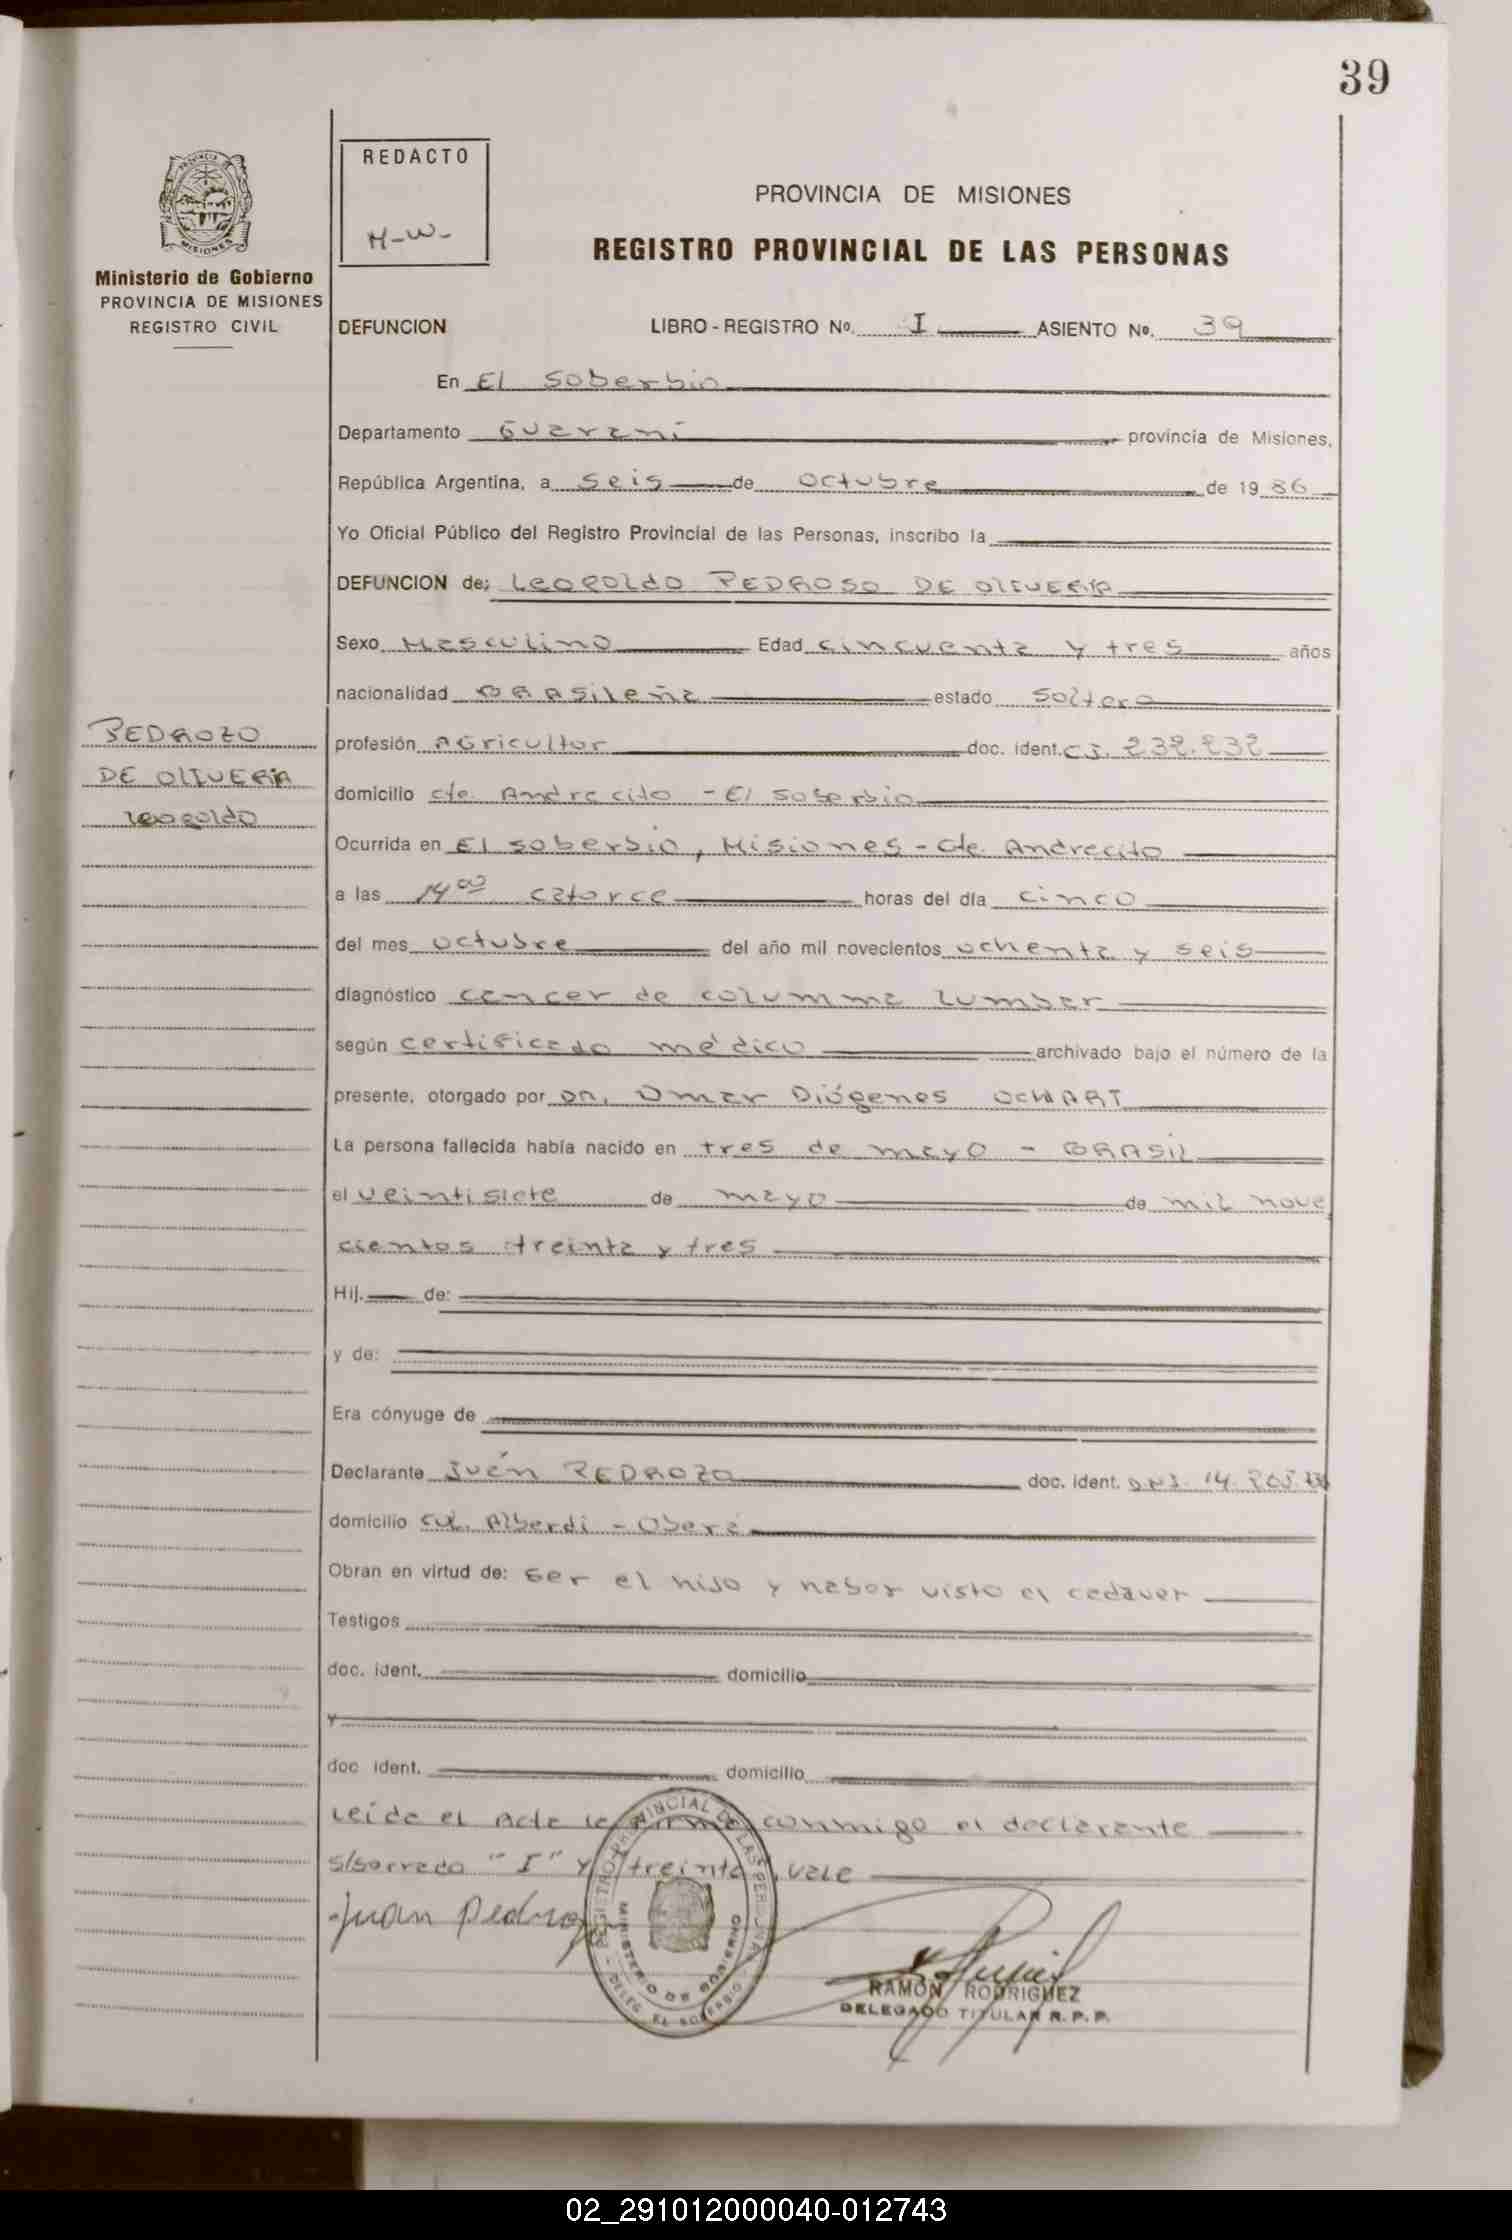 39
REDACTO
H-W-
Ministerio de Gobierno
PROVINCIA DE MISIONES
REGISTRO CIVIL
PROVINCIA DE MISIONES
REGISTRO PROVINCIAL DE LAS PERSONAS
DEFUNCION LIBRO - REGISTRO Nº. I ASIENTO Nº. 39
En El Soberbio
Departamento Guaraní provincia de Misiones,
República Argentina, a seis de octubre de 19 86
Yo Oficial Público del Registro Provincial de las Personas, inscribo la
DEFUNCION de: Leopoldo PEDROSO DE OLIVERIA
Sexo Masculino Edad cincuenta y tres años
nacionalidad Brasileña estado soltero
PEDROZO
DE OLIVERIA
Leopoldo
profesión Agricultor doc. ident. C.I. 232.232
domicilio Cte. Andrecito - El Soberbio
Ocurrida en El Soberbio, Misiones - Cte. Andrecito
a las 14 00 catorce horas del día cinco
del mes octubre del año mil novecientos ochenta y seis
diagnóstico cancer de columna lumbar
según certificado médico archivado bajo el número de la
presente, otorgado por DR. Omar Diógenes OCHART
La persona fallecida había nacido en tres de mayo - BRASIL
el veintisiete de mayo de mil nove
cientos treinta y tres
Hij. de:
y de:
Era cónyuge de
Declarante Juan PEDROZO doc. ident. D.N.I. 14.
domicilio Col. Alberdi - Oberá
Obran en virtud de: ser el hijo y haber visto el cadaver
Testigos
doc. ident. domicilio
y
doc. ident. domicilio
Leída el Acta la firma conmigo el declarante
S/borrado "I" y treinta, vale
Juan Pedrozo
REGISTRO PROVINCIAL DE LAS PERSONAS
MINISTERIO DE GOBIERNO
DELEG. EL SOBERBIO
RAMÓN RODRIGUEZ
DELEGADO TITULAR R. P. P.
02_291012000040-012743